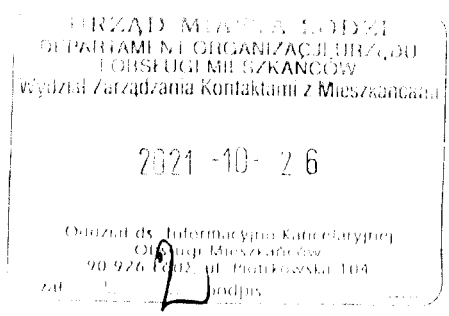 URZĄD MIASTA ŁODZI
DEPARTAMENT ORGANIZACJI URZĘDU
I OBSŁUGI MIESZKAŃCÓW
Wydział Zarządzania Kontaktami z Mieszkańcami
2021 -10- 26
Oddział ds. Informacyjno Kancelaryjnej
Obsługi Mieszkańców
90-926 Łódź, ul. Piotrkowska 104
zał. podpis